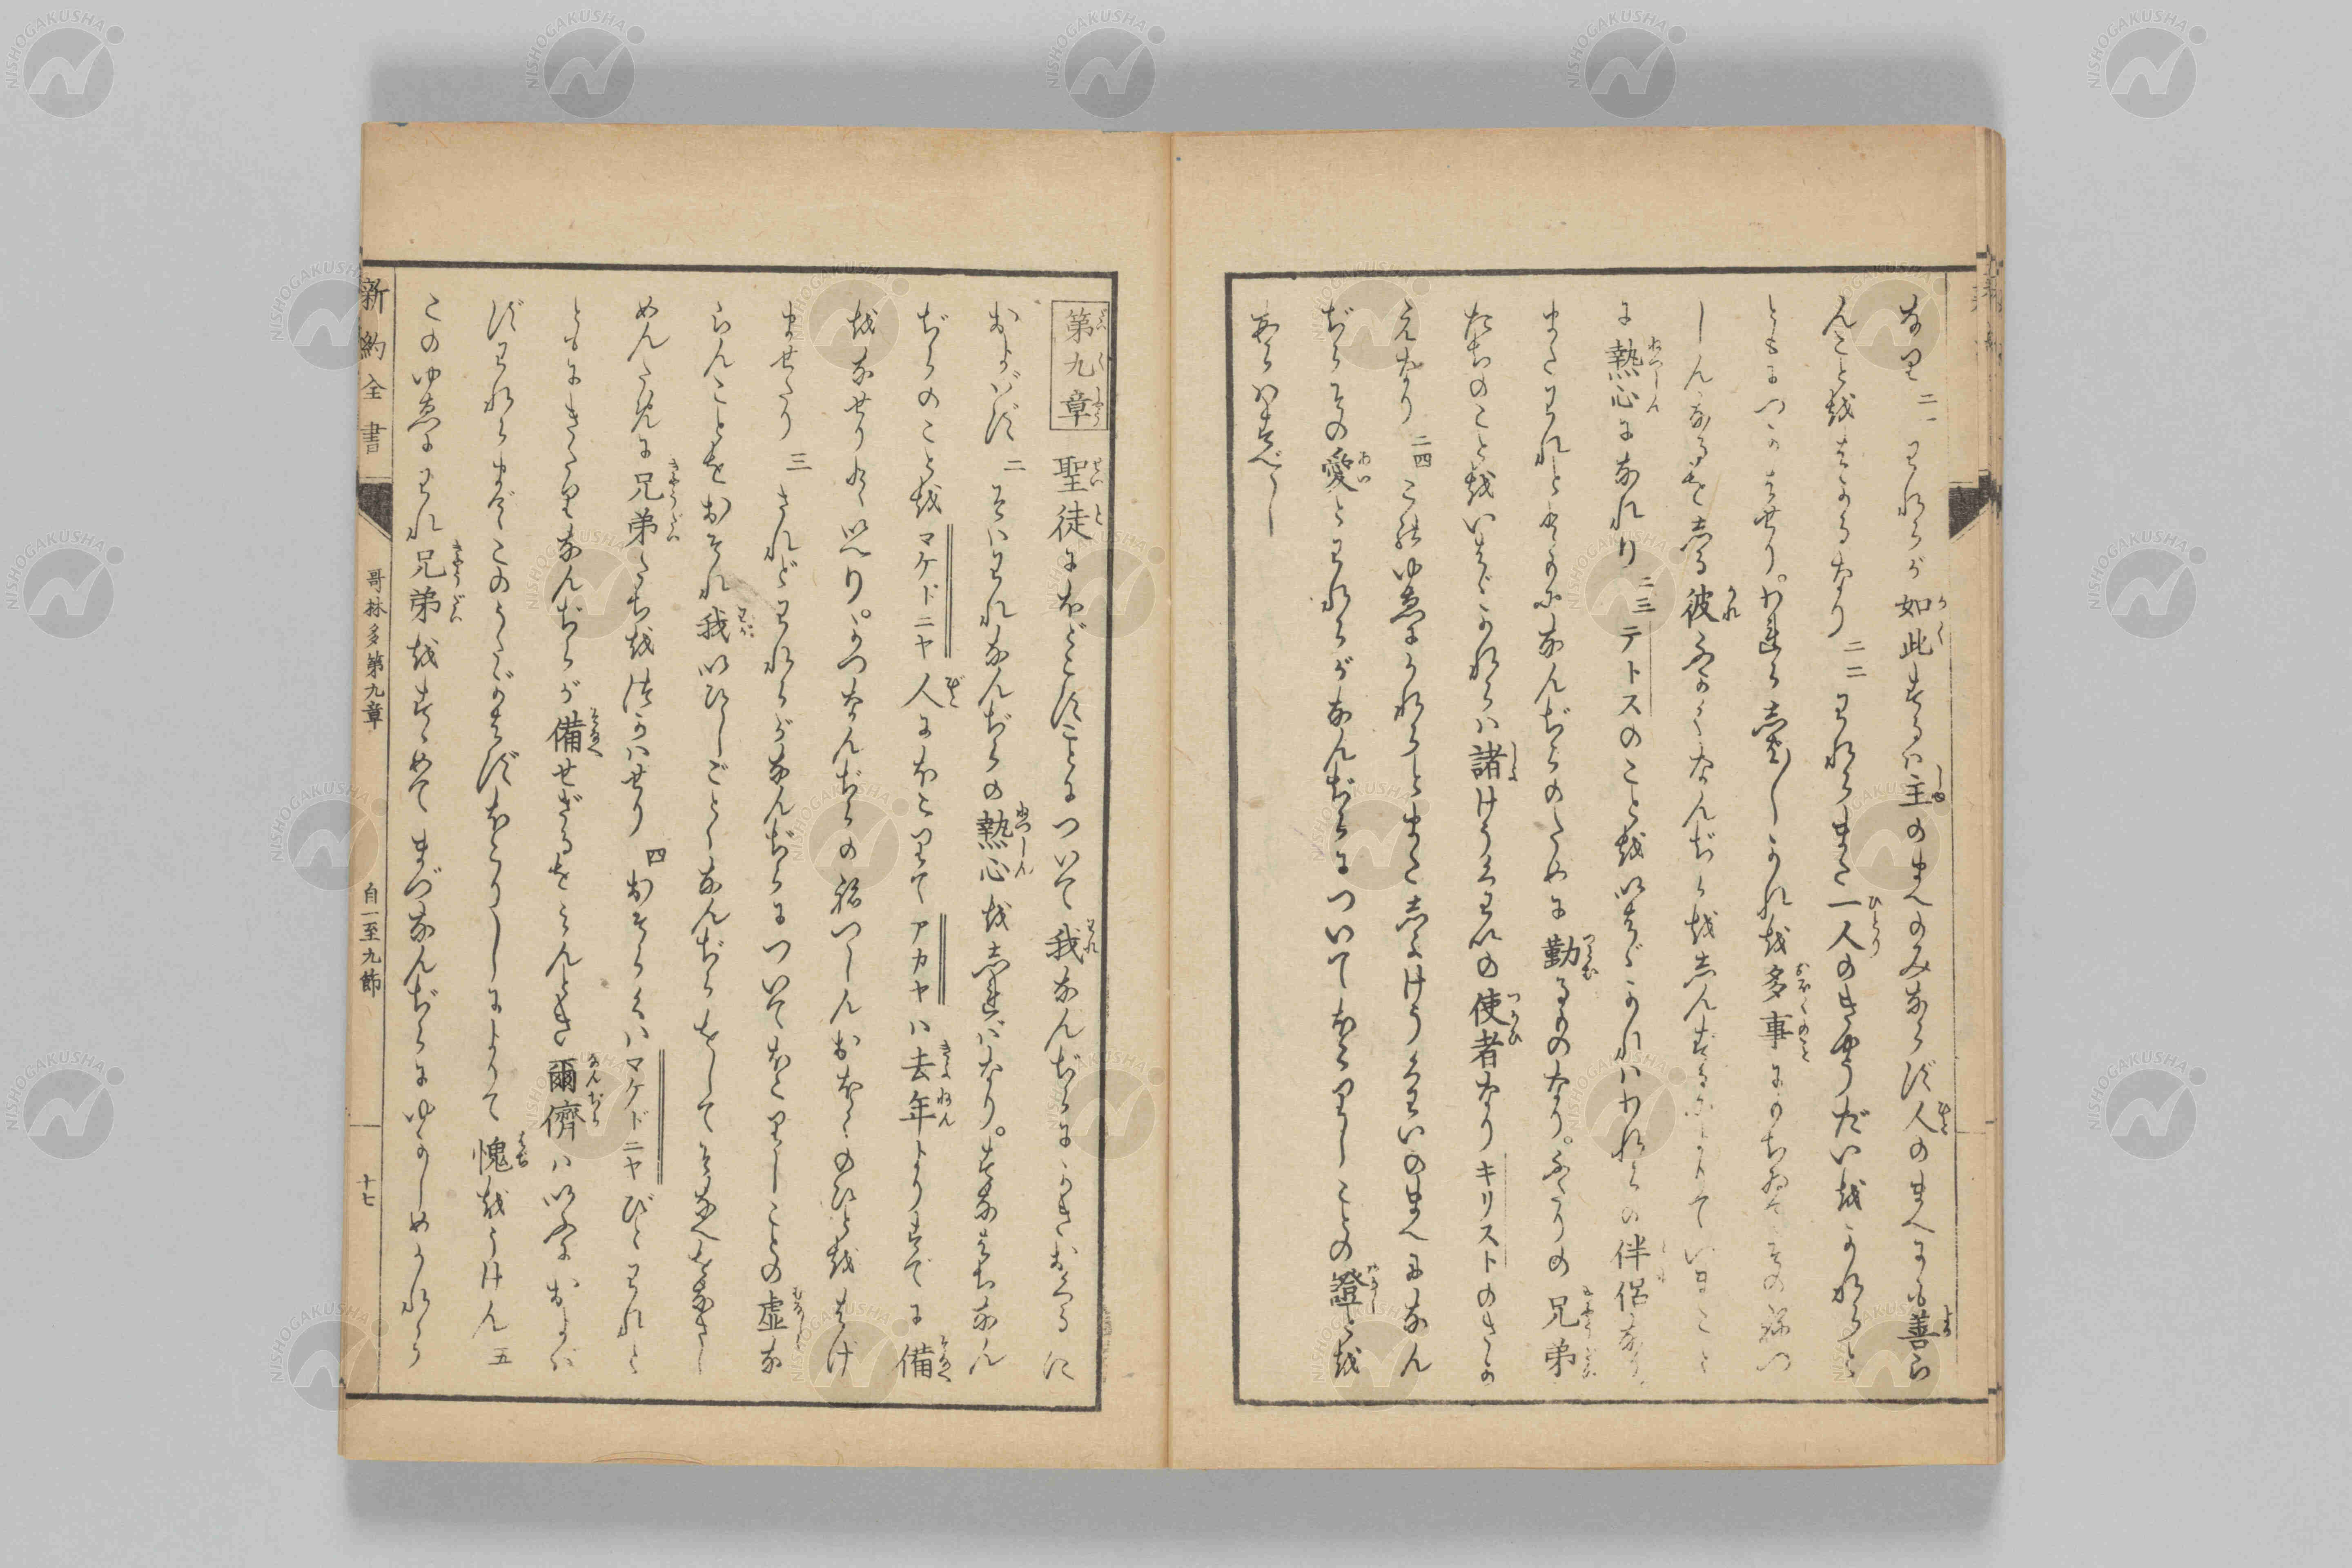 なり 二一 われらが如此するハ主のまへのみならず人のまへにも善ら
んことをはかるなり 二二 われらまた一人のきやうだいをかれらと
ともにつかはせり。われら屡〳〵かれを多事にこころみてその熱つ
しんなるをしる彼ふかくなんぢらをしんずるによりていまことに
熱心になれり 二三 テトスのことをいはゞかれハわれらの伴侶なり
またわれとともになんぢらのために勤るものなり。ふたりの兄弟
たちのことをいはゞかれらハ諸けうくわいの使者なりキリストのさか
えなり 二四 このゆゑにかれらとまたしよけうくわいのまへになん
ぢらその愛とわれらがなんぢらについてほこりしことの證とを
あらハすべし
第九章 聖徒にほどこすことについて我なんぢらにかきおくるに
およバず 二 そハわれなんぢらの熱心をしれバなり。すなはちなん
ぢらのことをマケドニヤ人にほこりてアカヤハ去年よりすでに備
をなせりといへり。かつなんぢらの熱つしんおほくのひとをはげ
ませたり 三 されどわれらがなんぢらについてほこりしことの虚な
らんことをおそれ我いひしごとくなんぢらをしてそなへをなさし
めんために兄弟たちをつかハせり 四 おそらくハマケドニヤびとわれと
ともにきたりなんぢらが備せざるをみんとき爾儕ハいふにおよバ
ずわれらまでこのうたがはずほこりしによりて愧をうけん 五
このゆゑにわれ兄弟をすゝめてまづなんぢらにゆかしめかれら
新約全書
哥林多第九章
自一至九節
十七